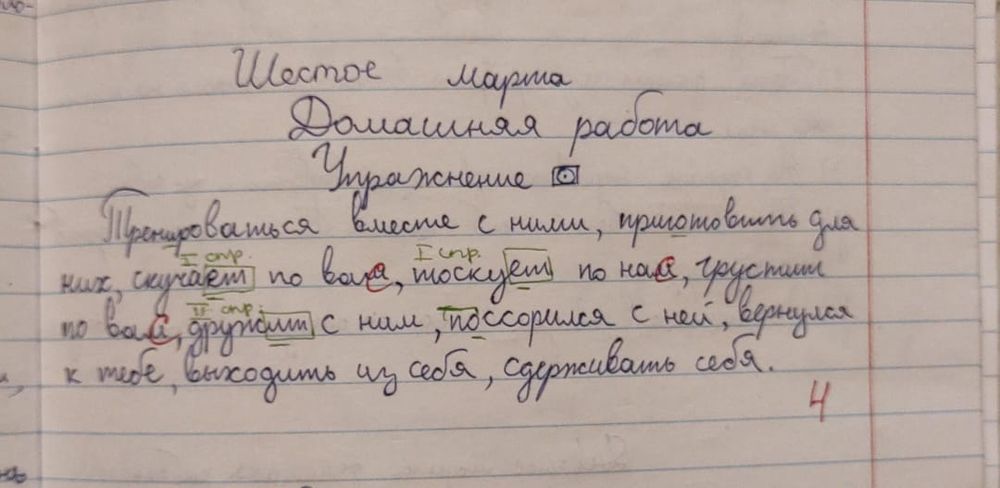 Шестое марта
Домашняя работа
Упражнение
Тренироваться вместе с ними, приготовить для
I спр. I спр.
них, скучает по вас, тоскует по нас, грустит
II спр.
по вас, дружит с ним, поссорился с ней, вернулся
к тебе, выходить из себя, сдерживать себя.
4